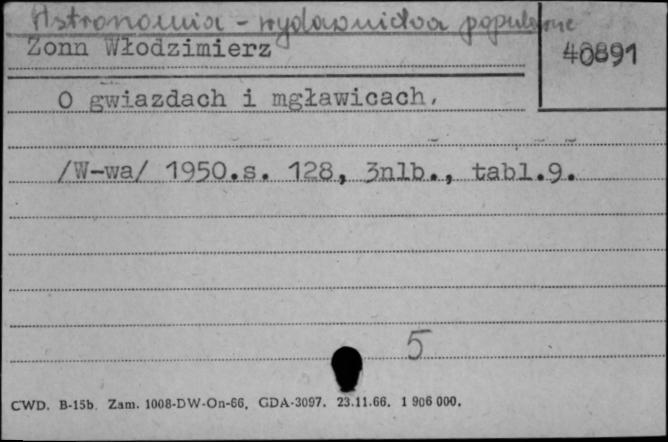 Astronomia - wydawnictwa popularne
Zonn Włodzimierz
40891
O gwiazdach i mgławicach.
/W-wa/ 1950.s. 128, 3nlb., tabl.9.
5
CWD. B-15b. Zam. 1008-DW-On-66, GDA-3097. 23.11.66. 1 906 000.